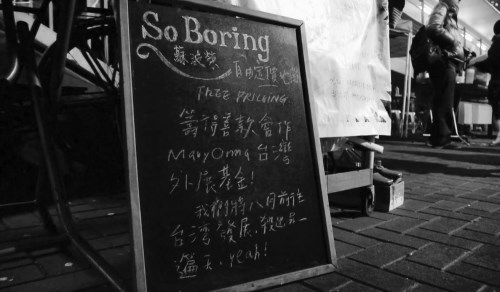 So Boring
蘇波榮
自由定價
FREE PRICEING
籌得善款會作
MaD Onna 台灣
外展基金!
我們將八月前往
台灣發展,殺出另一
遍天,yeah!